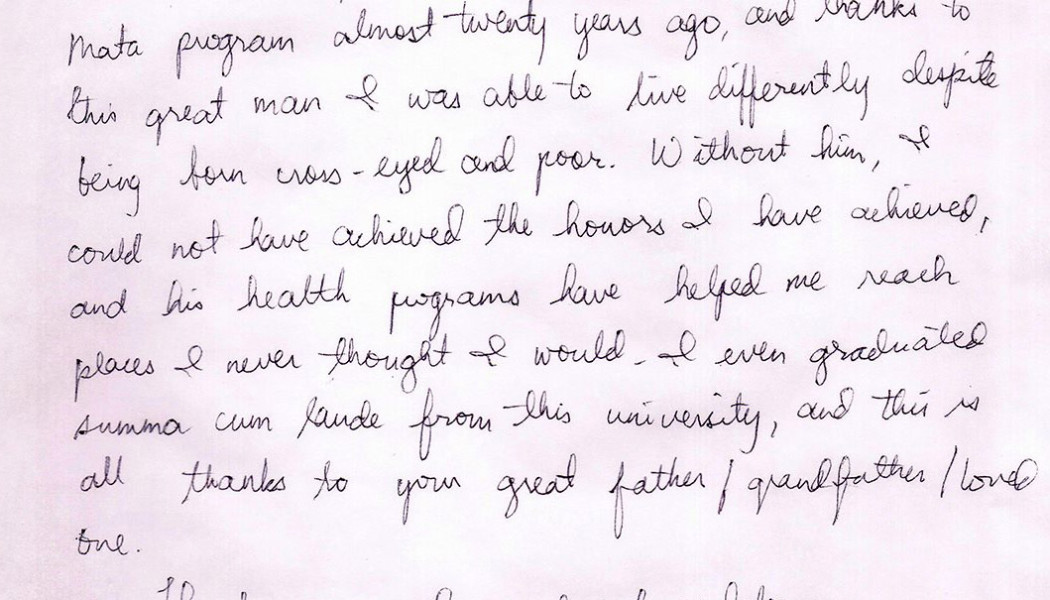 Mata program almost twenty years ago, and thanks to
this great man I was able to live differently despite
being born cross-eyed and poor. Without him, I
could not have achieved the honors I have achieved,
and his health programs have helped me reach
places I never thought I would. I even graduated
summa cum laude from this university, and this is
all thanks to your great father/grandfather/loved
one.